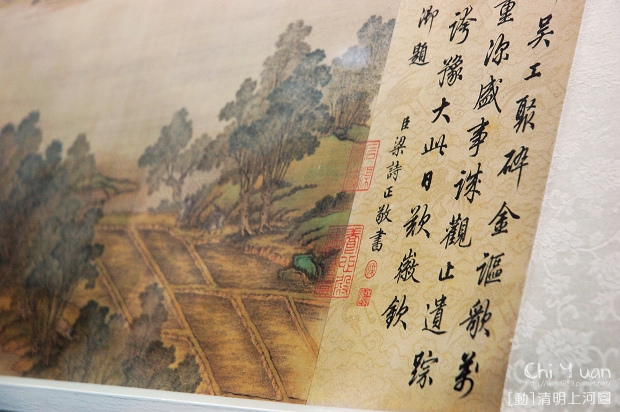 吳工聚碎金謳歌萬
重深盛事誠觀止遺踪
誇豫大此日歎徽欽
御題
臣梁詩正敬書
Chi Yuan
[動]清明上河圖